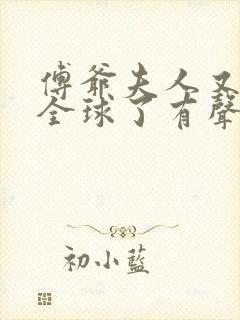 傅爺夫人又
全球了有聲
初小藍